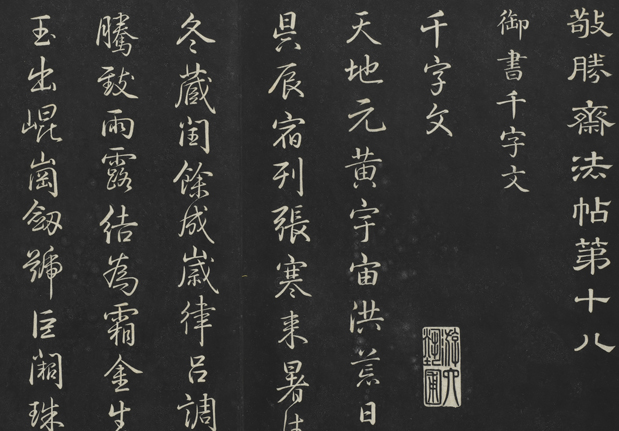 敬勝齋法帖第十八
御書千字文
千字文
游六藝圃
天地元黃宇宙洪荒日
昃辰宿列張寒来暑往
冬藏閏餘成歲律吕調
騰致雨露結為霜金生
玉出崐崗劔號巨闕珠